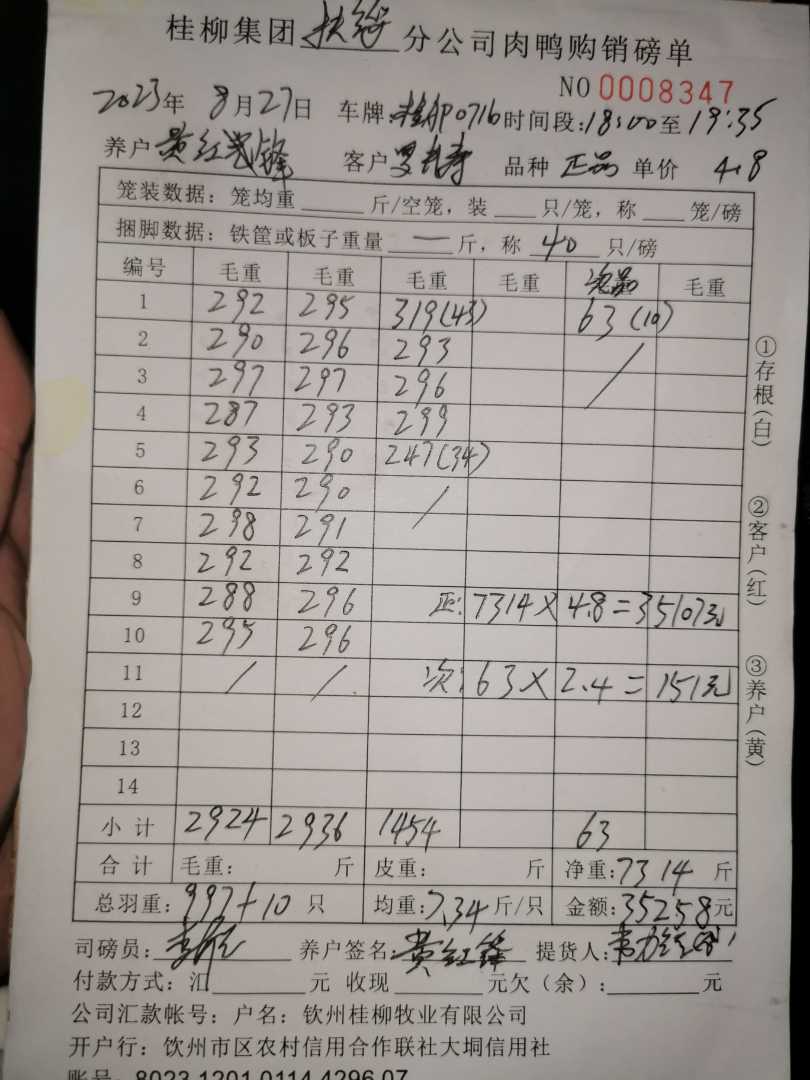 桂柳集团扶绥分公司肉鸭购销磅单
NO 0008347
2023年 8月27日 车牌:桂AP0716 时间段:18:00至19:35
养户 黄红锋 客户 品种 正品 单价 4.8
笼装数据：笼均重 斤/空笼，装 只/笼，称 笼/磅
捆脚数据：铁筐或板子重量 一 斤，称 40 只/磅
编号 毛重 毛重 毛重 毛重 次品 毛重
1 292 295 319(43) 63(10)
2 290 296 293 /
3 297 297 296
4 287 293 299
5 293 290 247(34)
6 292 290 /
7 298 291
8 292 292
9 288 296 正: 7314 × 4.8 = 35107元
10 295 296
11 / / 次: 63 × 2.4 = 151元
12
13
14
小计 2924 2936 1454 63
合计 毛重： 斤 皮重： 斤 净重:7314 斤
总羽重:997+10 只 均重:7.34 斤/只 金额:35258元
司磅员: 养户签名:黄红锋 提货人:
付款方式：汇 元 收现 元欠（余）: 元
公司汇款帐号：户名：钦州桂柳牧业有限公司
开户行：饮州市区农村信用合作联社大垌信用社
账号：8023 1201 0114 4296 07
①存根(白)
②客户(红)
③养户(黄)